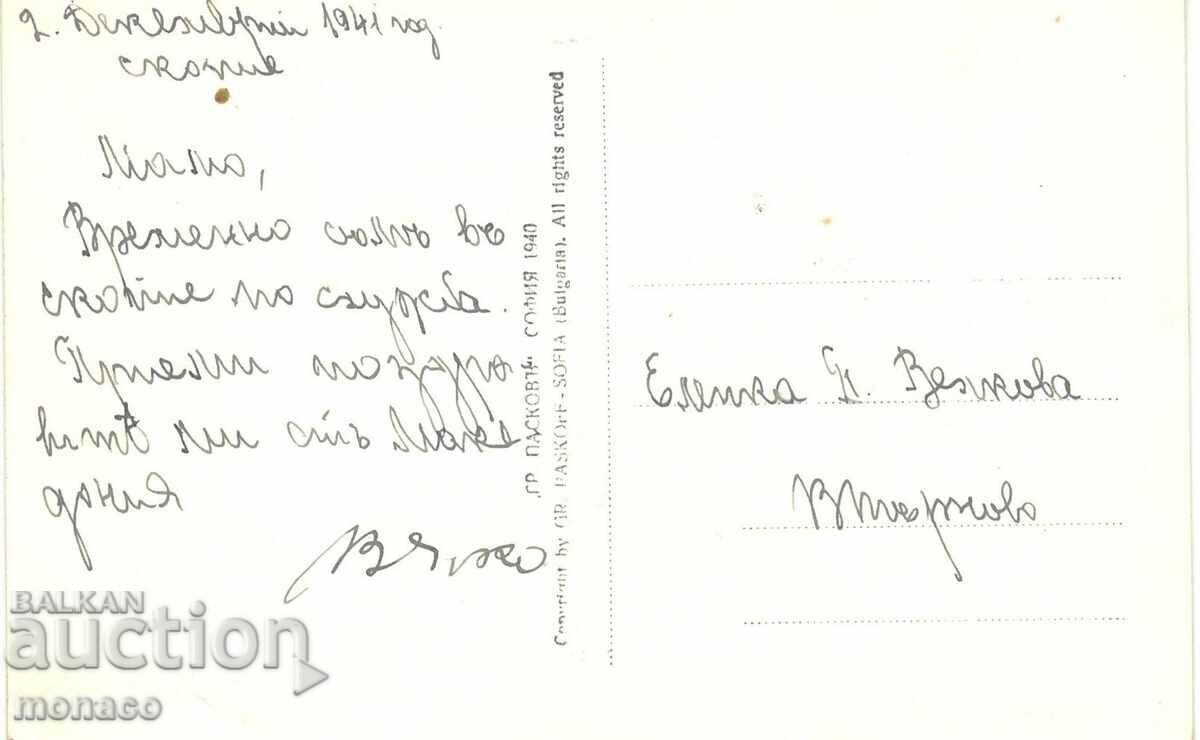 2. Декемврий 1941 год.
скопие
Мамо,
Временно съмъ въ
скопие по служба.
Приеми поздра
витѣ ми отъ Маке
дония
Вълко
ГР. ПАСКОВЪ СОФИЯ 1940
Copyright by GR. PASKOFF - SOFIA (Bulgaria). All rights reserved
Еленка Д. Вълкова
В Търново
BALKAN
auction
monaco